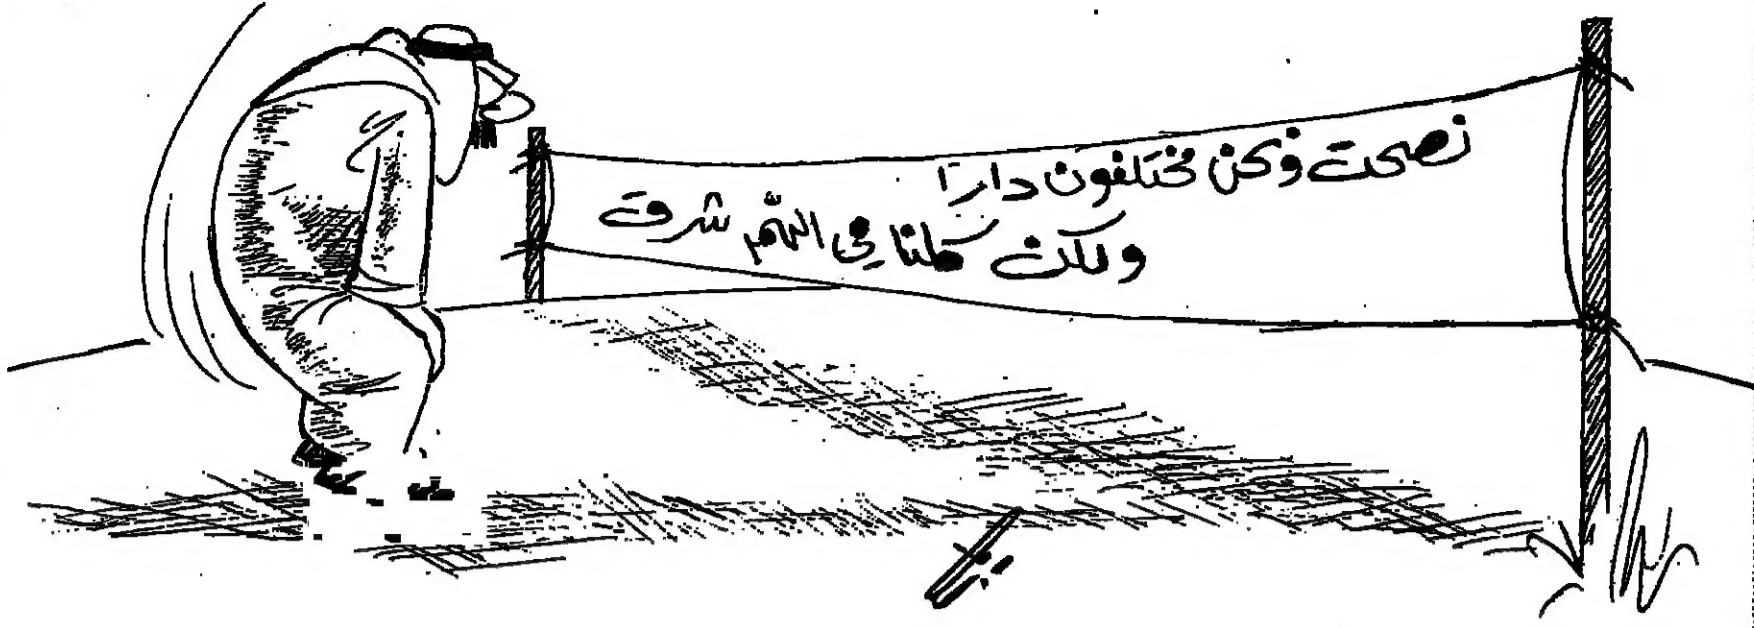 نصحت ونحن مختلفون دارًا
ولكن كلنا في الهمّ شرق